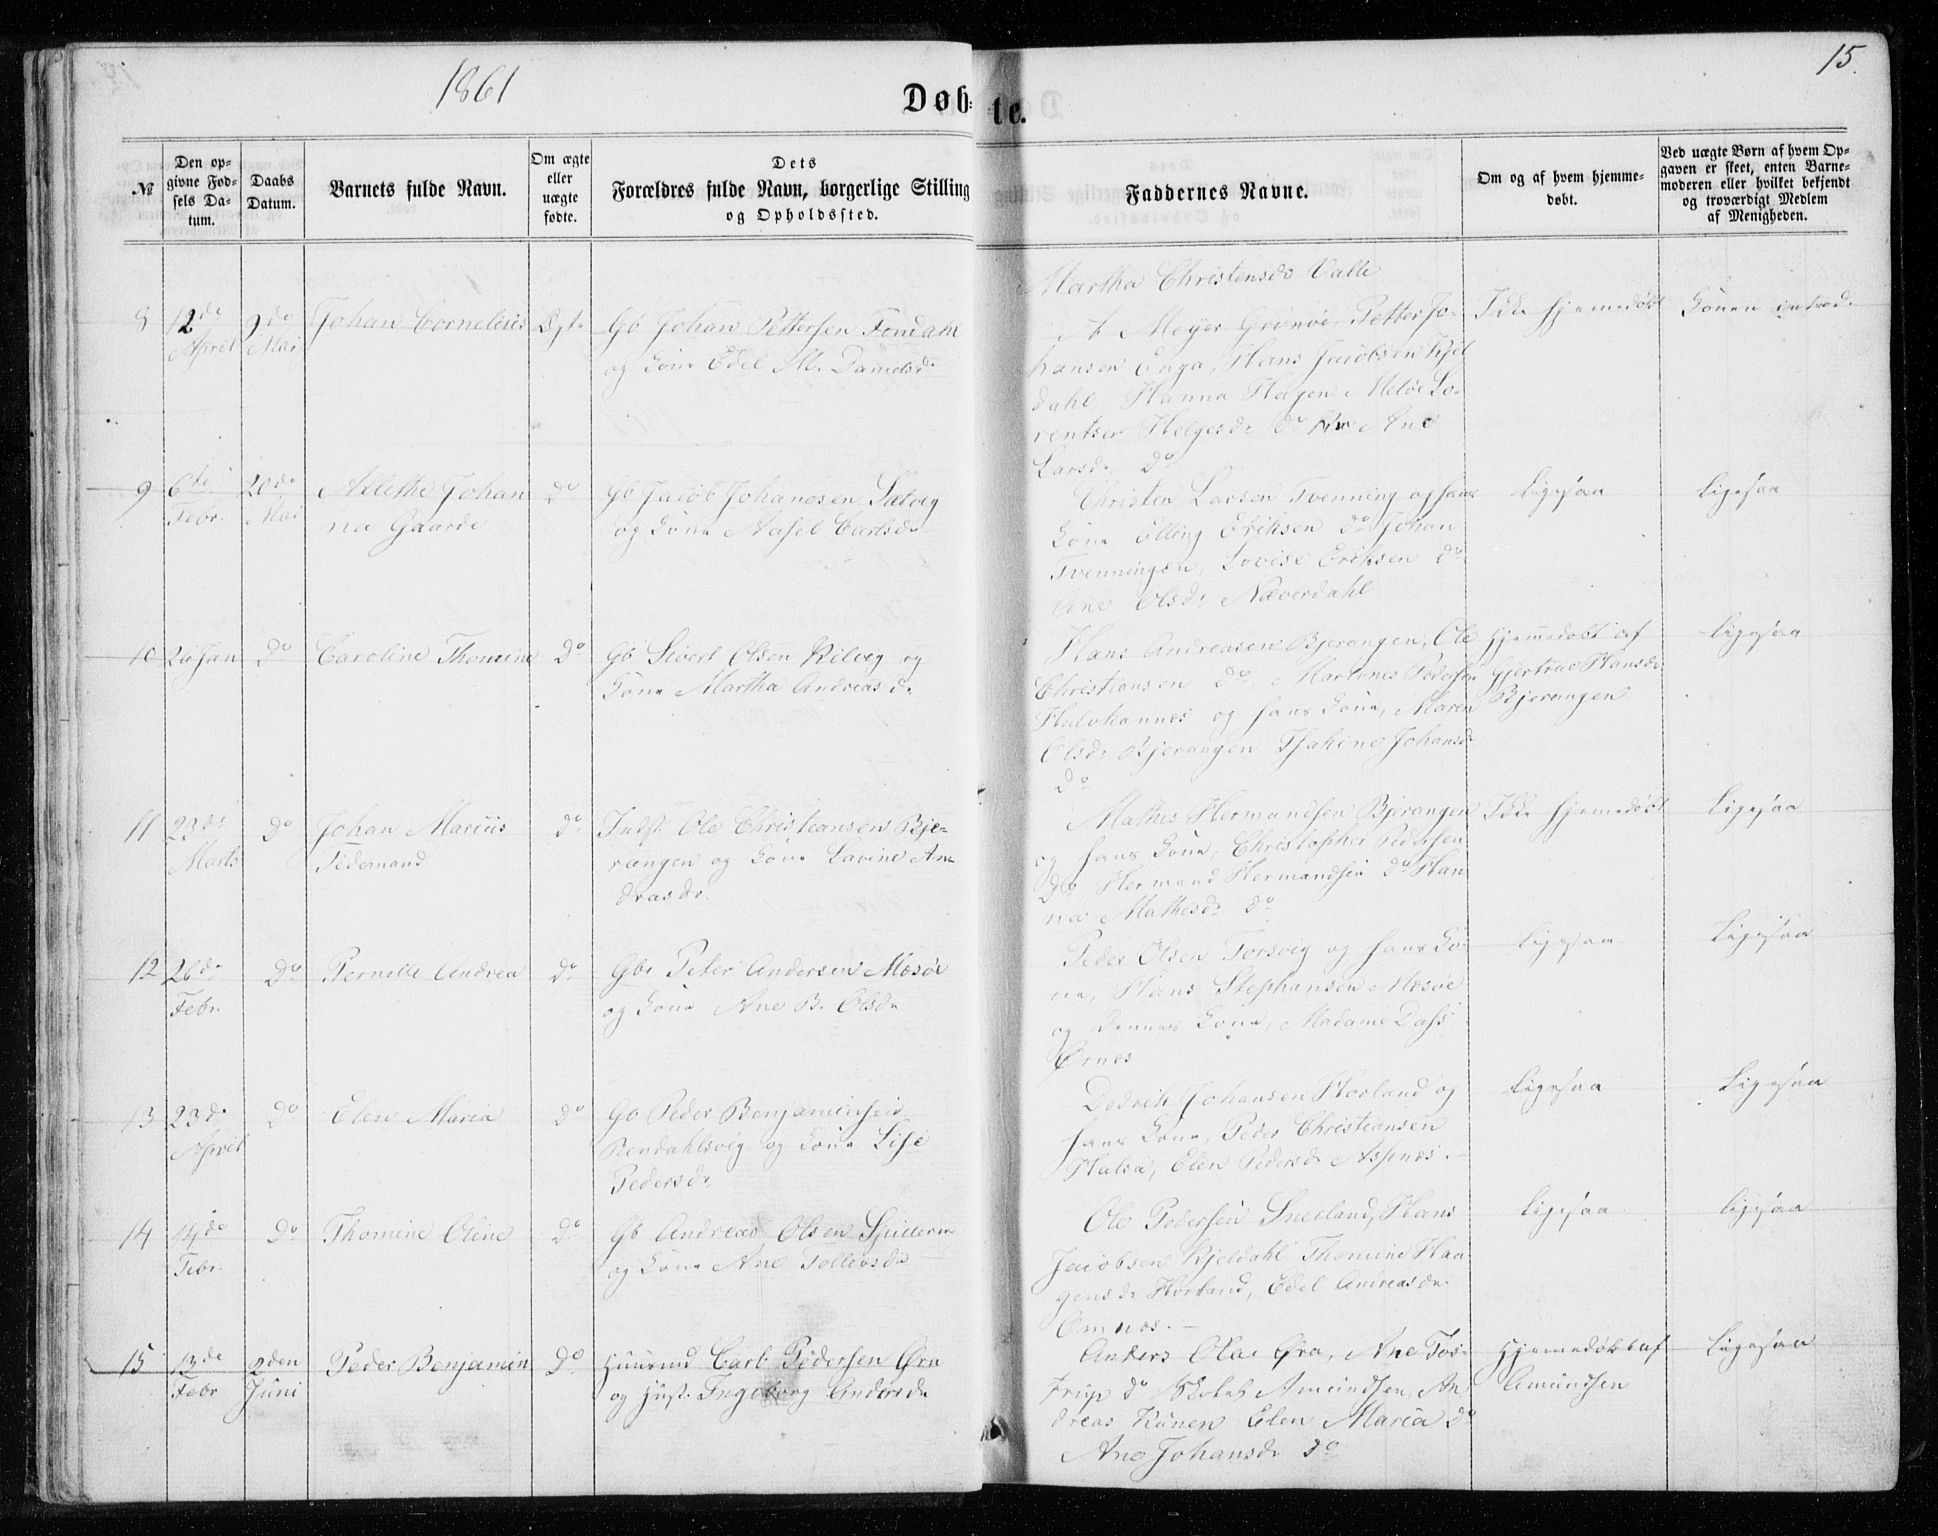 1861
Døb=
te.
15.
№
Den op=
givne Fød=
sels Da=
tum.
Daabs
Datum.
Barnets fulde Navn.
Om ægte
eller
uægte
fødte.
Dets
Forældres fulde Navn, borgerlige Stilling
og Opholdssted.
Faddernes Navne.
Om og af hvem hjemme-
døbt.
Ved uægte Børn af hvem Op-
gaven er skeet, enten Barne-
moderen eller hvilket bekjendt
og troværdigt Medlem
af Menigheden.
Martha Christensdr Valle
8
12de
April
9de
Mai
Johan Cornelius
Ægte
Gb Johan Pettersen Fondahl
og Kone Edel M. Danielsdr
A Meyer Grønøe, Petter Jo-
hansen Enga, Hans Jacobsen Kjel
dahl, Hanna Hagen Meløe Lo-
rentse Helgesdr do Ane
Larsdr do
Ikke hjemmedøbt
Konen introd.
9
6te
Febr.
20de
Mai
Alethe Johan
na Gaarde
do
Gb Jacob Johanesen Sætvig
og Kone Axsel Carlsdr
Christen Larsen Tvenning og hans
Kone Elling Eriksen do Johan
Tvenningen, Lovise Eriksen do
Ane Olsdr Næverdahl
Ligesaa
Ligesaa
10
26 Jan
do
Caroline Thomine
do
Gb Sivert Olsen Kilveg og
Kone Martha Andreasdr
Hans Andreasen Bjerangen, Ole
Christiansen do, Martines Pedersen
og hans Kone, Maren
Olsdr Bjerangen Johansdr
do
hjemmedøbt af
Gjertrue Hansdr
Bjerangen
Ligesaa
11
23de
Marts
do
Johan Marius
Tidemand
do
Indst: Ole Christiansen Bje-
rangen og Kone Lavine An-
dreasdr.
Mathis Hermandsen Bjerangen
og hans Kone, Christopher Pedersen
do Hermand Hermandsen do Han
na Mathesdr do
Ikke hjemmedøbt
Ligesaa
12
26de
Febr.
do
Pernelle Andrea
do
Gbr Peter Andersen Mesøe
og Kone Ane B. Olsdr
Peder Olsen Torsvig og hans Ko-
ne, Hans Stephansen Mesøe
og dennes Kone, Madame Dass
Ørnes
Ligesaa
Ligesaa
13
23de
April
do
Elen Maria
do
Gb Peder Benjaminsen
Rendahlsvig og Kone Lise
Pedersdr
Dedrik Johansen Horland og
hans Kone, Peder Christiansen
Halsa, Elen Pedersdr Aspnes.
Ligesaa
Ligesaa
14
14de
Febr.
do
Thomine Oline
do
Gb Andreas Olsen Spilleren
og Kone Ane Tollevsdr
Ole Pedersen Snelland, Hans
Jacobsen Kjeldahl Thomine Haa-
gensdr Horland, Edel Andreasdr
Omnes.
Ligesaa
Ligesaa
15
13de
Febr
2den
Juni
Peder Benjamin
do
Huusmd Carl Pedersen Øra
og Hust. Ingeborg Andersdr
Anders Olai Øra, Ane Tos-
trup do Amundsen, An
dreas Kunen Elen Maria do
Ane Johansdr do
Hjemmedøbt af
Amundsen
Ligesaa